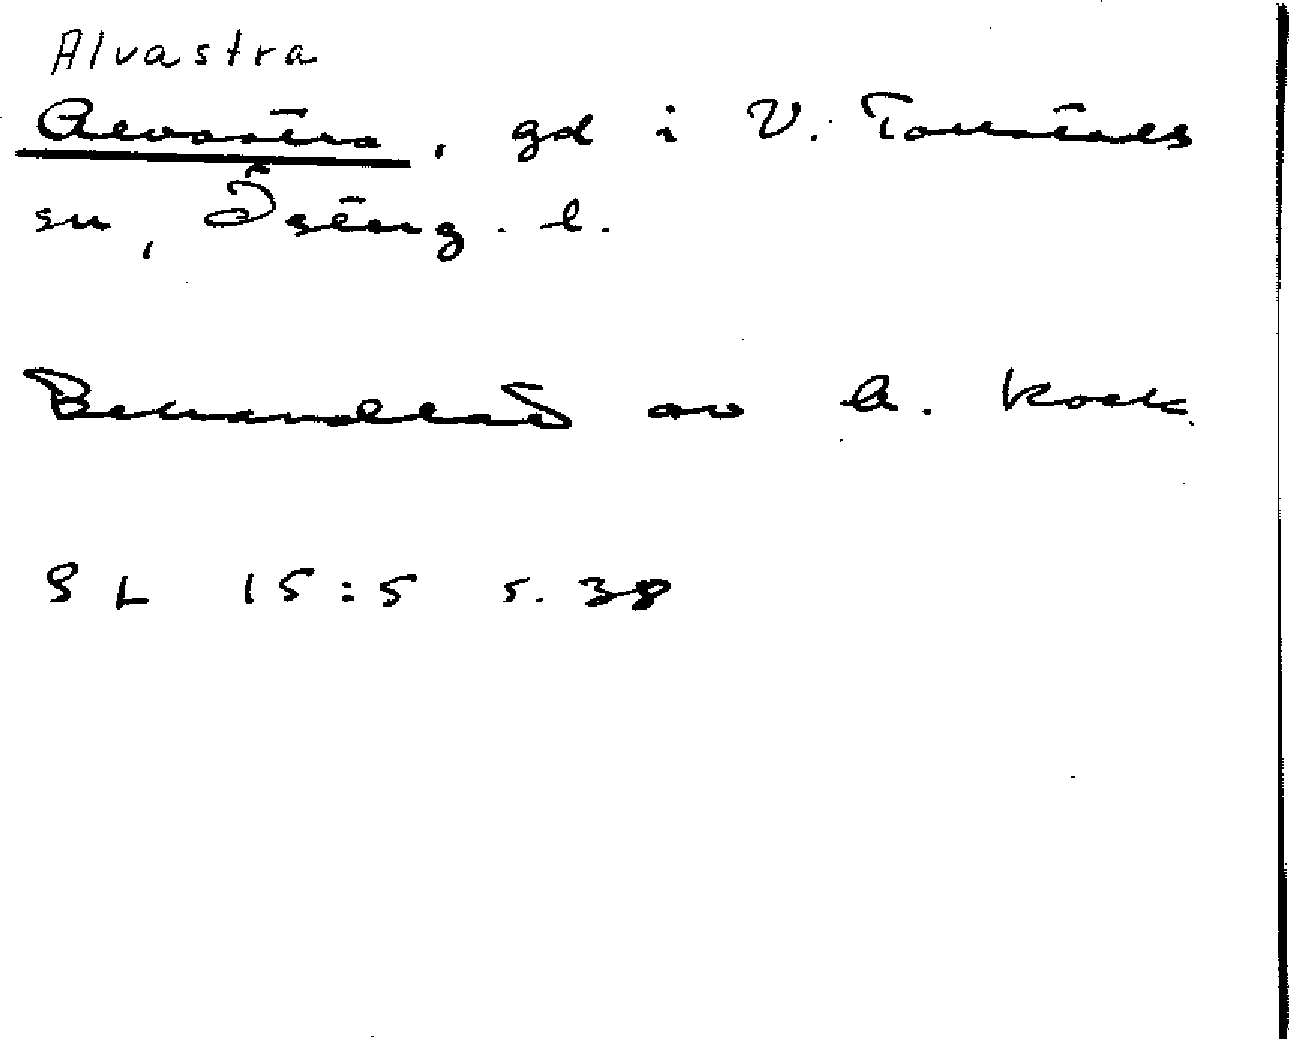 Alvastra
Alvastra, gd i V. Tollstads
sn, Österg. l.
Behandlat av A. Kock
SL 15:5 s. 38